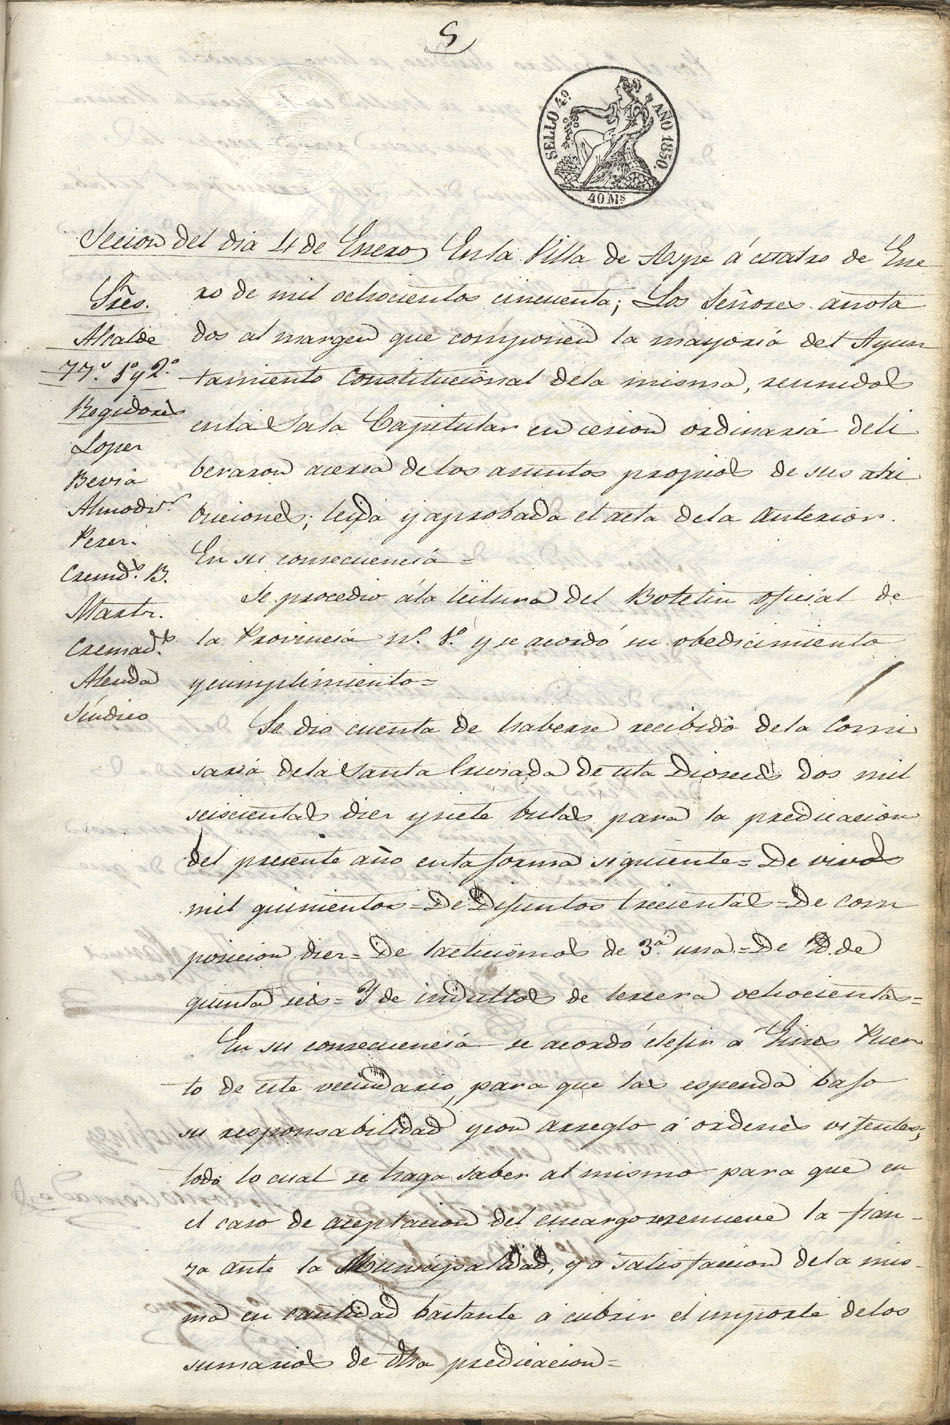 5
SELLO 4º AÑO 1850.
40 Ms
Secion del dia 4 de Enero En la Villa de Aspe á cuatro de Ene
ro de mil ochocientos cincuenta; Los Señores anota
dos al margen que componen la mayoria del Ayun
tamiento Constitucional dela misma, reunidos
enla Sala Capitular en cesion ordinaria deli
beraron acerca delos asuntos propios de sus atri
buciones; leida y aprobada el acta dela anterior.
En su consecuencia=
Sres.
Alcalde
TTs. 1º y 2º
Regidores
Loper
Beviá
Almodr.
Perer.
Cremds. B.
Martr.
Cremads.
Alenda
Sindico
Se procedió ála leitura del Boletin oficial de
la Provincia nº. 1º. y se acordó su obedicimiento
y cumplimiento=
Se dio cuenta de haberse recibido dela Comi
saria dela Santa Cruzada de esta Diocesis dos mil
seiscientas dier y siete bulas para la predicacion
del presente año enta forma siguiente= De vivos
mil quinientos= De Difuntos trecientas= De com
posicion dier= De lacticinios de 3ª. una= De Yd. de
quinta seis= Y de indultos de tercera ochocientas=
En su consecuencia se acordó elejir a Gines Puer
to de este vecindario, para que las espenda bajo
su responsabilidad y con arreglo á ordenes vijentes;
todo lo cual se haga saber al mismo para que en
el caso de aceptacion del encargo renueve la fian-
za ante la Municipalidad, y á satisfaccion dela mis-
ma en cantidad bastante á cubrir el importe delos
sumarios de dha predicacion=